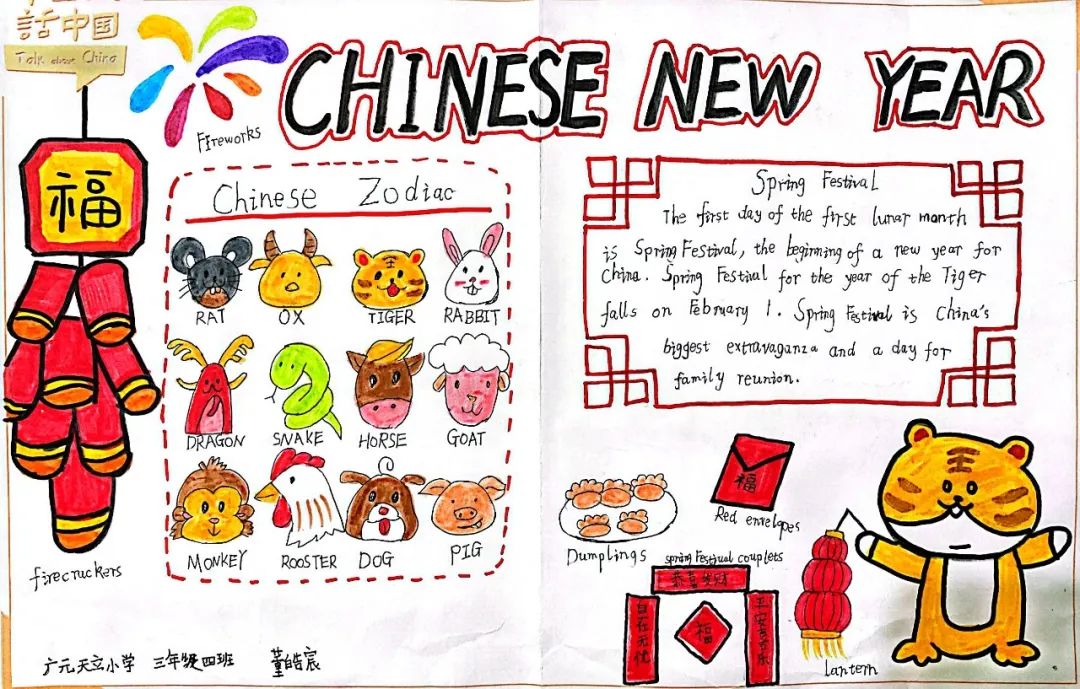 話中国
Talk about China
Fireworks
CHINESE NEW YEAR
福
firecruckers
Chinese Zodiac
RAT OX TIGER RABBIT
DRAGON SNAKE HORSE GOAT
MONKEY ROOSTER DOG PIG
Spring Festival
The first day of the first lunar month
is Spring Festival, the beginning of a new year for
China. Spring Festival for the year of the Tiger
falls on February 1. Spring Festival is China's
biggest extravaganza and a day for
family reunion.
福
Red envelopes
Dumplings
spring Festival couplets
恭喜发财
自在无忧
福
平安喜乐
lantern
广元天立小学 三年级四班 董皓宸